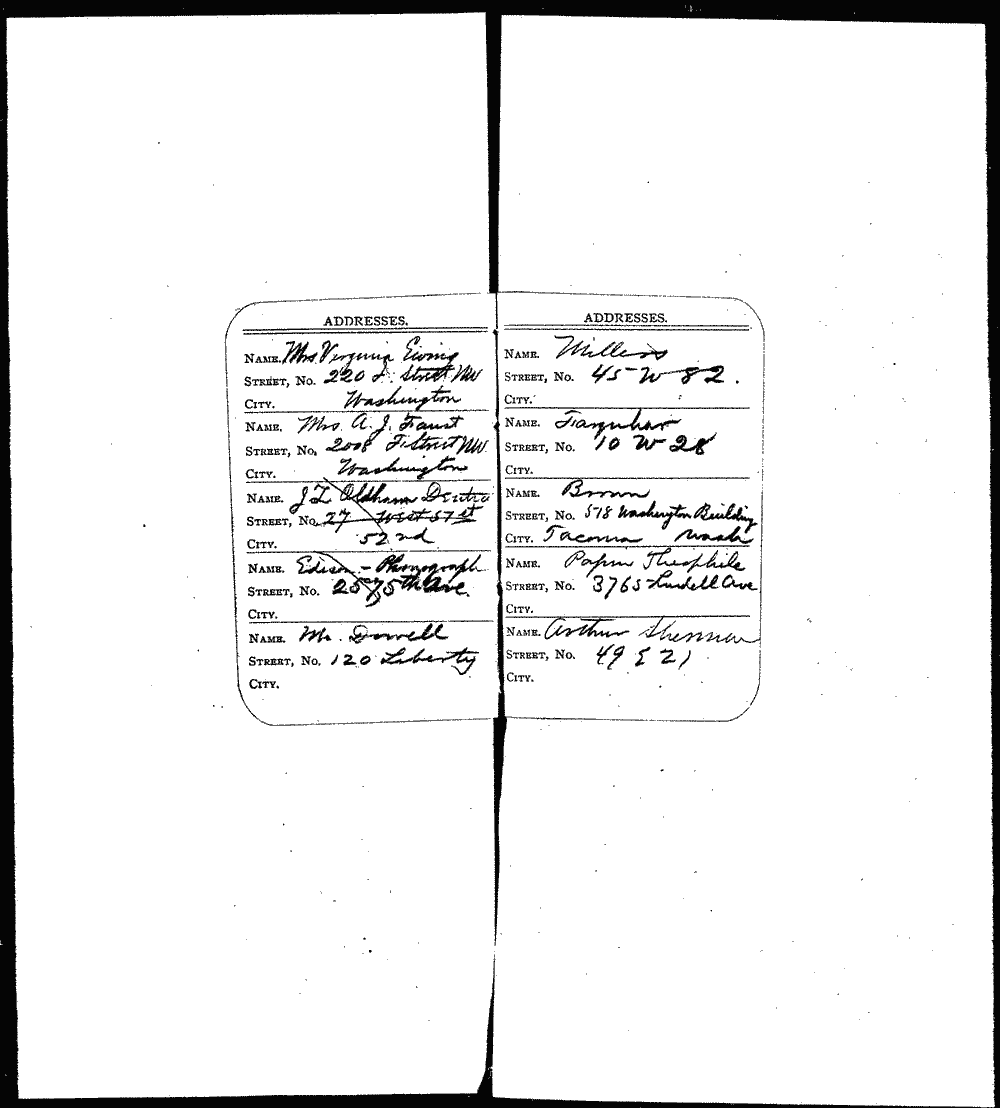 ADDRESSES.
NAME. Mrs. Virginia Ewing
STREET, No. 220 Street NW
CITY. Washington
NAME. Mrs. A. J. Faust
STREET, No. 2008 F. Street NW.
CITY. Washington
NAME. J L Oldham
STREET, No. 27 West 57 st
CITY. 52nd
NAME. Edison - Phonograph
STREET, No. 5th Ave.
CITY.
NAME. Mr. Dowell
STREET, No. 120 Liberty
CITY.
ADDRESSES.
NAME. Millers
STREET, No. 45 W 82.
CITY.
NAME. Farquhar
STREET, No. 10 W 28
CITY.
NAME. Brown
STREET, No. 518 Washington Building
CITY. Tacoma Wash
NAME. Papin Theophile
STREET, No. 3765 Lindell Ave
CITY.
NAME. Arthur Sherman
STREET, No. 49 E 21
CITY.